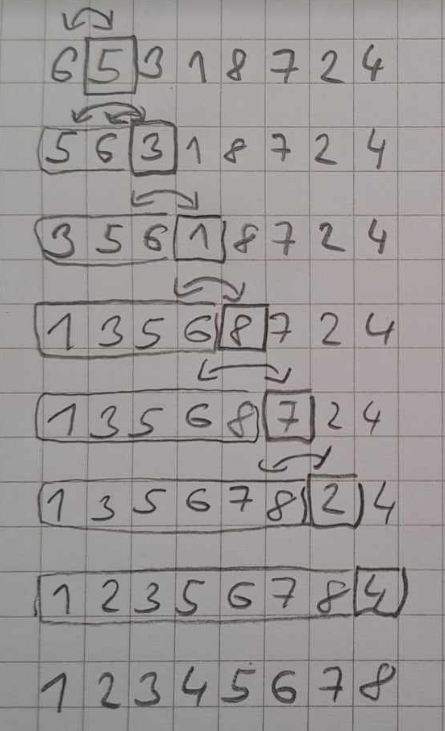 6 5 3 1 8 7 2 4
5 6 3 1 8 7 2 4
3 5 6 1 8 7 2 4
1 3 5 6 8 7 2 4
1 3 5 6 8 7 2 4
1 3 5 6 7 8 2 4
1 2 3 5 6 7 8 4
1 2 3 4 5 6 7 8